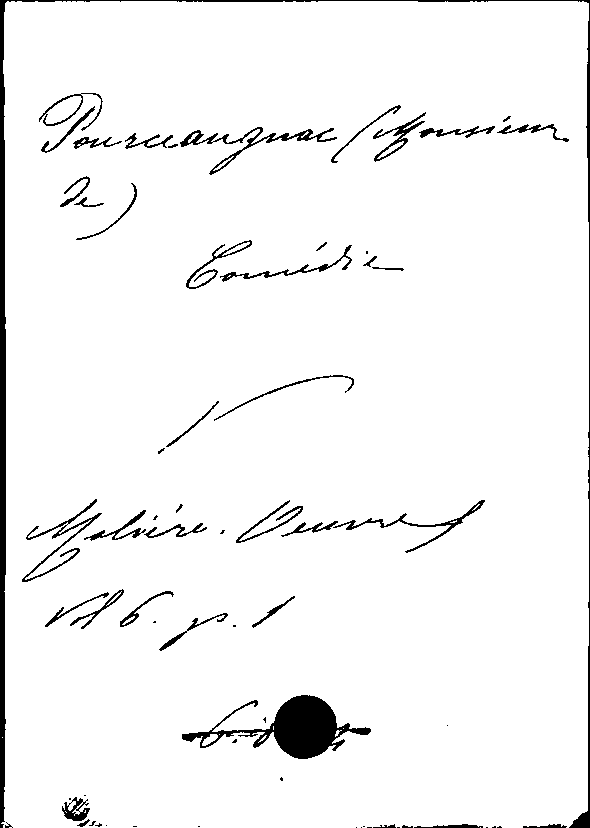 Pourceaugnac (Monsieur
de)
Comédie
Molière. Oeuvres
Vol 6. p. 1